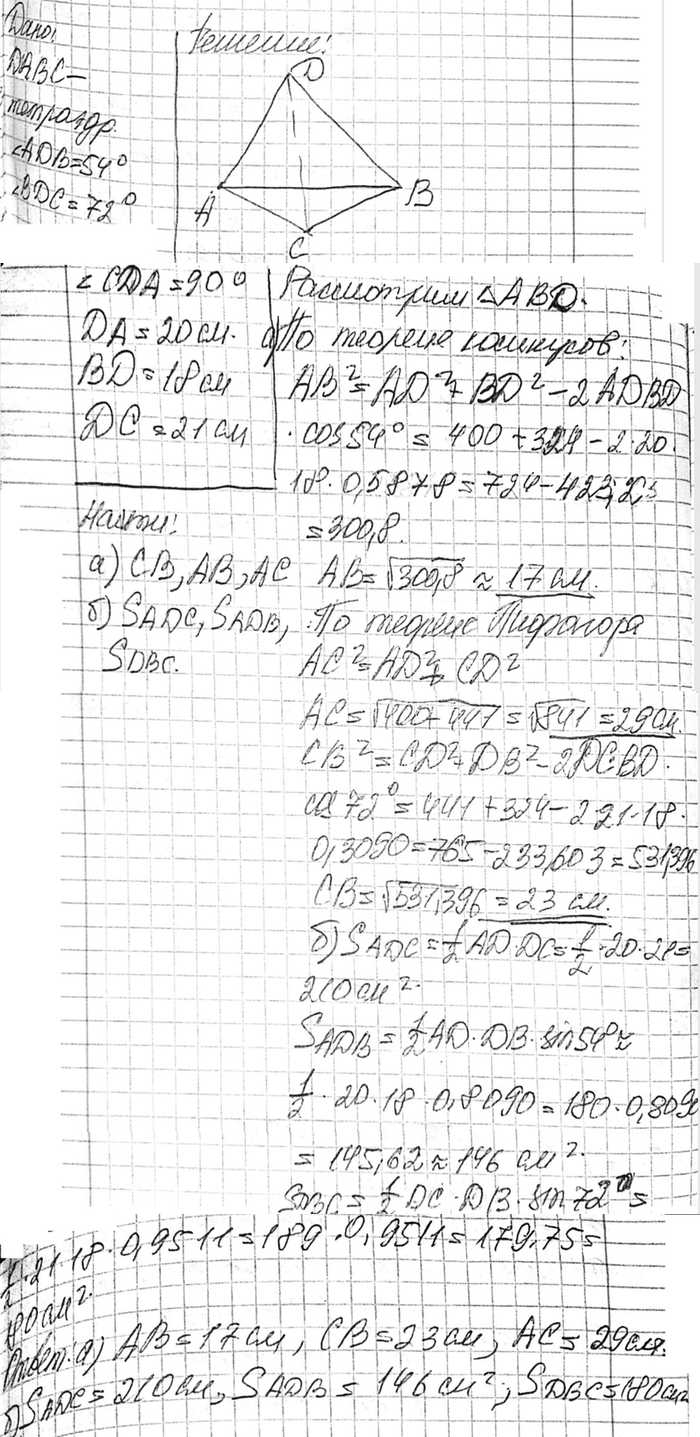 Дано:
DABC—
тетраэдр.
∠ADB=54°
∠BDC=72°
Решение:
D
A
B
C
∠CDA=90°
DA=20см.
BD=18см
DC=21см
Найти:
а) CB, AB, AC
б) SADC, SADB,
SDBC.
Рассмотрим △ABD.
а) По теореме косинусов:
AB²=AD²+BD²−2AD·BD
·cos54°=400+324−2·20·
18·0,5878=724−423,2=
=300,8.
AB=√300,8≈17см.
По теореме Пифагора
AC²=AD²+CD²
AC=√400+441=√841=29см.
CB²=CD²+DB²−2DC·BD·
cos72°=441+324−2·21·18·
0,3090=765−233,603=531,396
CB=√531,396=23см.
б) SADC=½AD·DC=½·20·21=
210см².
SADB=½AD·DB·sin54°≈
½·20·18·0,8090=180·0,8090
=145,62≈146см².
SDBC=½DC·DB·sin72°=
½·21·18·0,9511=189·0,9511=179,75=
180см².
Ответ: а) AB=17см, CB=23см, AC=29см.
б) SADC=210см, SADB=146см², SDBC=180см²